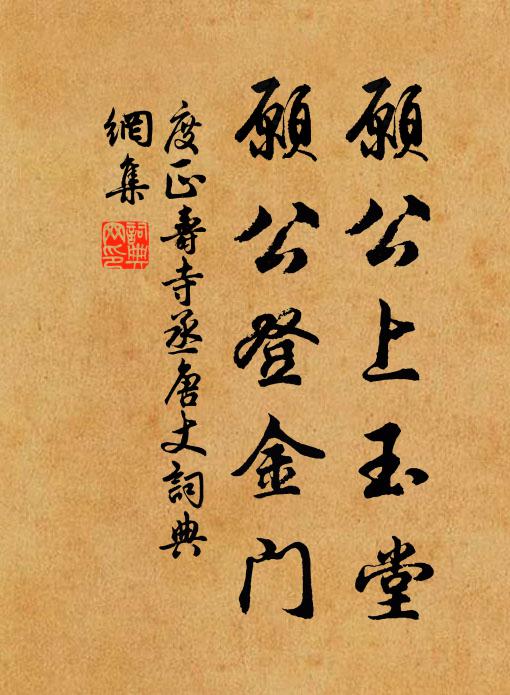 願公上玉堂
願公登金门
度正壽寺丞唐丈詞典
網集
詞典
网印